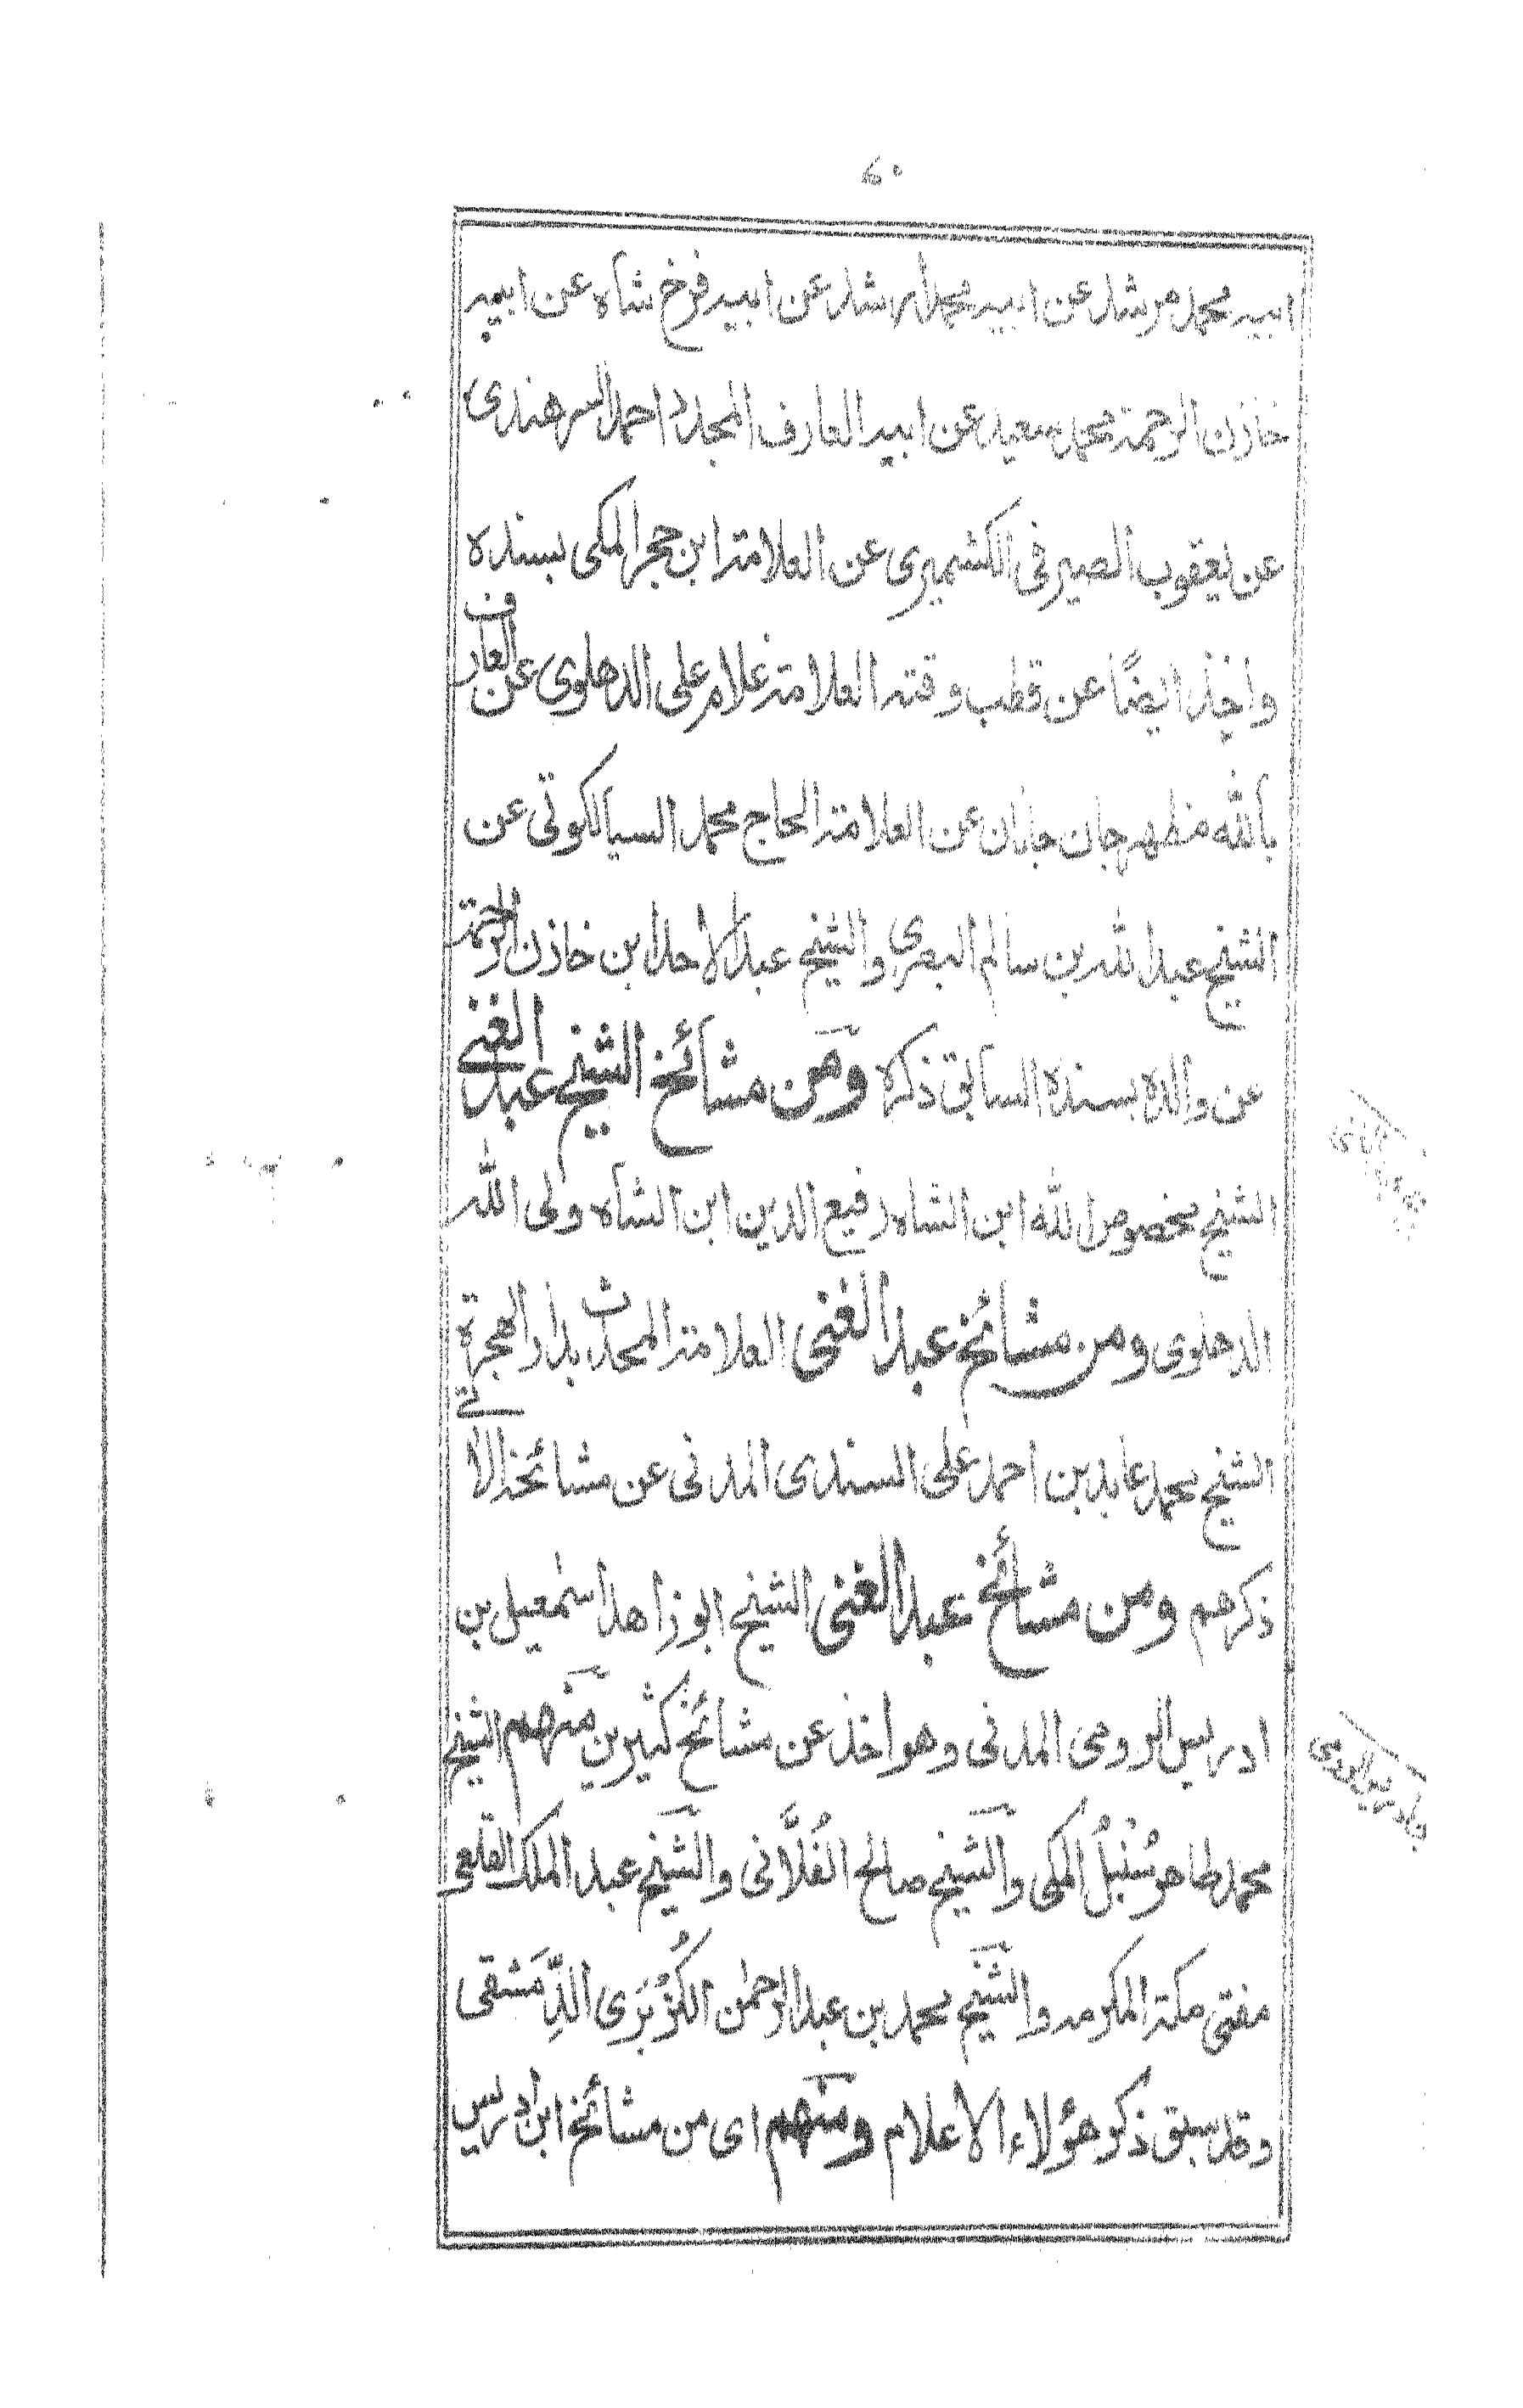 ٤٠
ابيه محمد مرشد عن ابيه محمد ارشد عن ابيه فرخ شاه عن ابيه
خازن الرحمة محمد سعيد عن ابيه العارف المجدد احمد السرهندى
عن يعقوب الصيرفى الكشميرى عن العلامة ابن حجر المكى بسنده
واخذ ايضًا عن قطب وقته العلامة غلام على الدهلوى عن العارف
بالله مظهر جان جانان عن العلامة الحاج محمد السيالكوتى عن
الشيخ عبد الله بن سالم البصرى والشيخ عبد الاحد ابن خازن الرحمة
عن والده بسنده السابق ذكره ومن مشائخ الشيخ عبد الغنى
الشيخ مخصوص الله ابن الشاه رفيع الدين ابن الشاه ولى الله
الدهلوى ومن مشائخ عبد الغنى العلامة المحدث بدار الهجرة
الشيخ محمد عابد بن احمد على السندى المدنى عن مشائخه الاٰتى
ذكرهم ومن مشائخ عبد الغنى الشيخ ابو زاهد اسمٰعيل بن
ادريس الرومى المدنى وهو اخذ عن مشائخ كثيرين منهم الشيخ
محمد طاهر سُنْبُلُ المكى والشيخ صالح الفُلَّانى والشيخ عبد الملك القلعى
مفتى مكة المكرمه والشيخ محمد بن عبد الرحمٰن الكُزْبَرى الدِّمَشقى
وقد سبق ذكر هؤلاء الاعلام ومنهم اى من مشائخ ابن ادريس